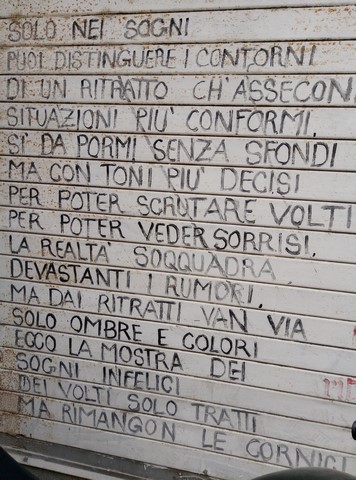 SOLO NEI SOGNI
PUOI DISTINGUERE I CONTORNI
DI UN RITRATTO CH'ASSECON
SITUAZIONI PIU' CONFORMI,
SI' DA PORMI SENZA SFONDI
MA CON TONI PIU' DECISI
PER POTER SCRUTARE VOLTI
PER POTER VEDER SORRISI.
LA REALTA' SOQQUADRA
DEVASTANTI I RUMORI,
MA DAI RITRATTI VAN VIA
SOLO OMBRE E COLORI
ECCO LA MOSTRA DEI
SOGNI INFELICI
DEI VOLTI SOLO TRATTI
MA RIMANGON LE CORNICI